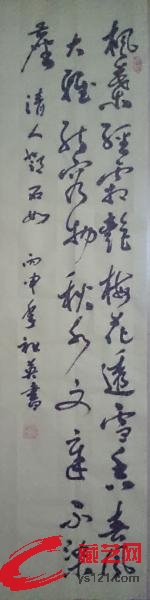 枫叶经霜艳梅花透雪香春风
大雅能容物秋水文章不染
尘 清人邓石如 丙申年 祖英书
藏艺网
ys121.com